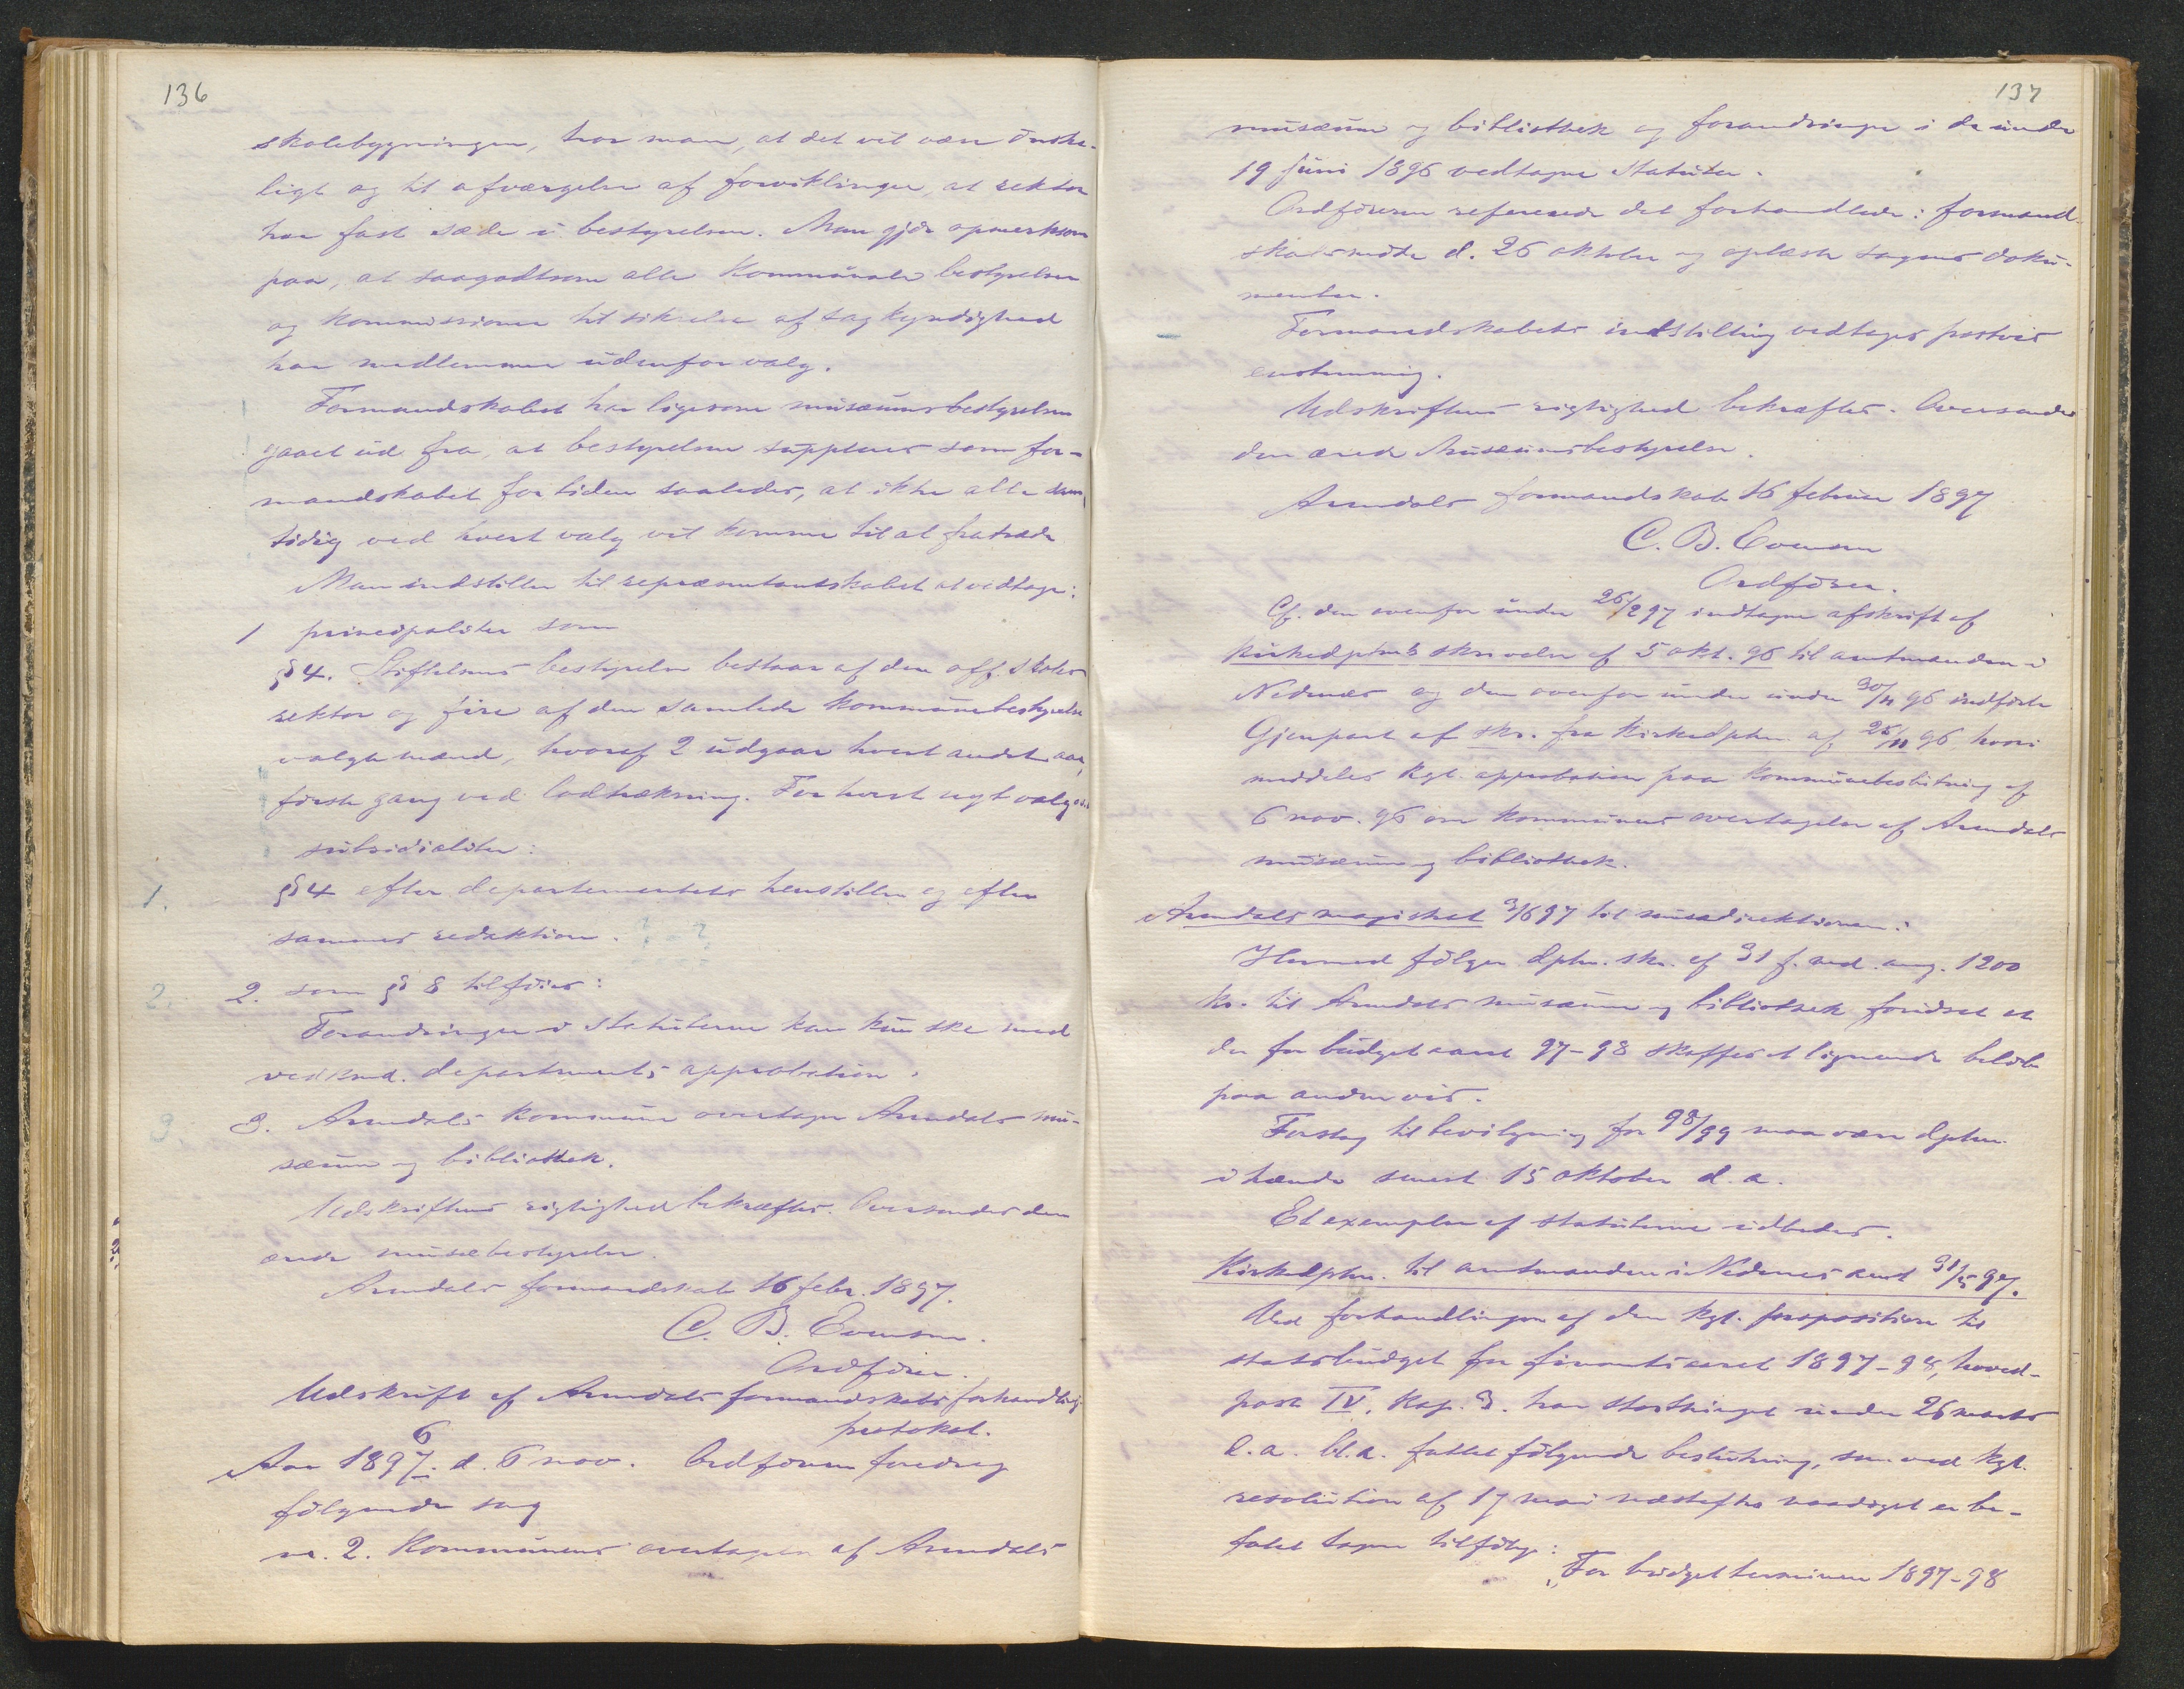 136
skolebygningen, tror man, at det vil være önske-
ligt og til afværgelse af forviklinger, at rektor
har fast sæde i bestyrelsen. Man gjör opmerksom
paa, at saagodtsom alle kommunale bestyrelser
og kommissioner til sikrelse af sagkyndighed
har medlemmer udenfor valg.
Formandskabet har ligesom musæumsbestyrelsen
gaaet ud fra, at bestyrelsen suppleres som for-
mandskabet for tiden saaledes, at ikke alle sam-
tidig ved hvert valg vil komme til at fratræde.
Man indstiller til repræsentantskabet at vedtage:
1 principaliter som
§ 4. Stiftelsens bestyrelse bestaar af den off. skoles
rektor og fire af den samlede kommunebestyrelse
valgte mænd, hvoraf 2 udgaar hvert andet aar,
förste gang ved lodtrækning. For hvert nyt valg
subsidialiter:
1. § 4 efter departementets henstillen og efter
sammes redaktion.
2. 2. som § 8 tilföies:
Forandringer i statuterne kan kun ske med
vedkmd. departments approbation.
3. 3. Arendals kommune overtager Arendals mu-
sæum og bibliothek.
Udskriftens rigtighed bekræftes. Oversendes den
ærede musæbestyrelse.
Arendals formandskab 16 febr. 1897.
C. B. Evensen.
Ordförer.
Udskrift af Arendals formandskabs forhandlings-
protokol.
Aar 1897. 6 d. 6 nov. Ordföreren foredrog
fölgende sag
no. 2. Kommunens overtagelse af Arendals
137
musæum og bibliothek og forandringer i de under
19 juni 1896 vedtagne statuter.
Ordföreren refererede det forhandlede i formand-
skabsmöte d. 26 oktober og oplæste sagens doku-
menter.
Formandskabets indstilling vedtages postvis
enstemmig.
Udskriftens rigtighed bekræftes. Oversendes
den ærede Musæumsbestyrelse.
Arendals formandskab 16 februar 1897
C. B. Evensen
Ordförer.
Cf. den ovenfor under 26/2 97 indtagne afskrift af
Kirkedptets skrivelse af 5 okt. 96 til amtmanden i
Nedenæs og den ovenfor under under 30/11 96 indförte
Gjenpart af skr. fra Kirkedptm. af 25/11 96 hvori
meddeles kgl. approbation paa kommunebeslutning af
6 nov. 96 om kommunens overtagelse af Arendals
musæum og bibliothek.
Arendals magistrat 3/6 97 til musædirektionen:
Hermed fölger dptm. skr. af 31 f. md. ang. 1200
kr. til Arendals musæum og bibliothek forudsat at
der for budgetaaret 97-98 skaffes et lignende belöb
paa anden vis.
Forslag til bevilgning for 98/99 maa være dptm.
i hænde senest 15 oktober d. a.
Et exemplar af statuterne udbedes.
Kirkedptm. til amtmanden i Nedenes amt 31/5 97.
Ved forhandlingen af den kgl. proposition til
statsbudget for finantsaaret 1897-98, hoved-
post IV, kap. 3. har storthinget under 26 marts
d. a. bl. a. fattet fölgende beslutning, som ved kgl.
resolution af 17 mai næstefter naadigst er be-
falet tagen tilfölge:
"For budgetterminen 1897-98